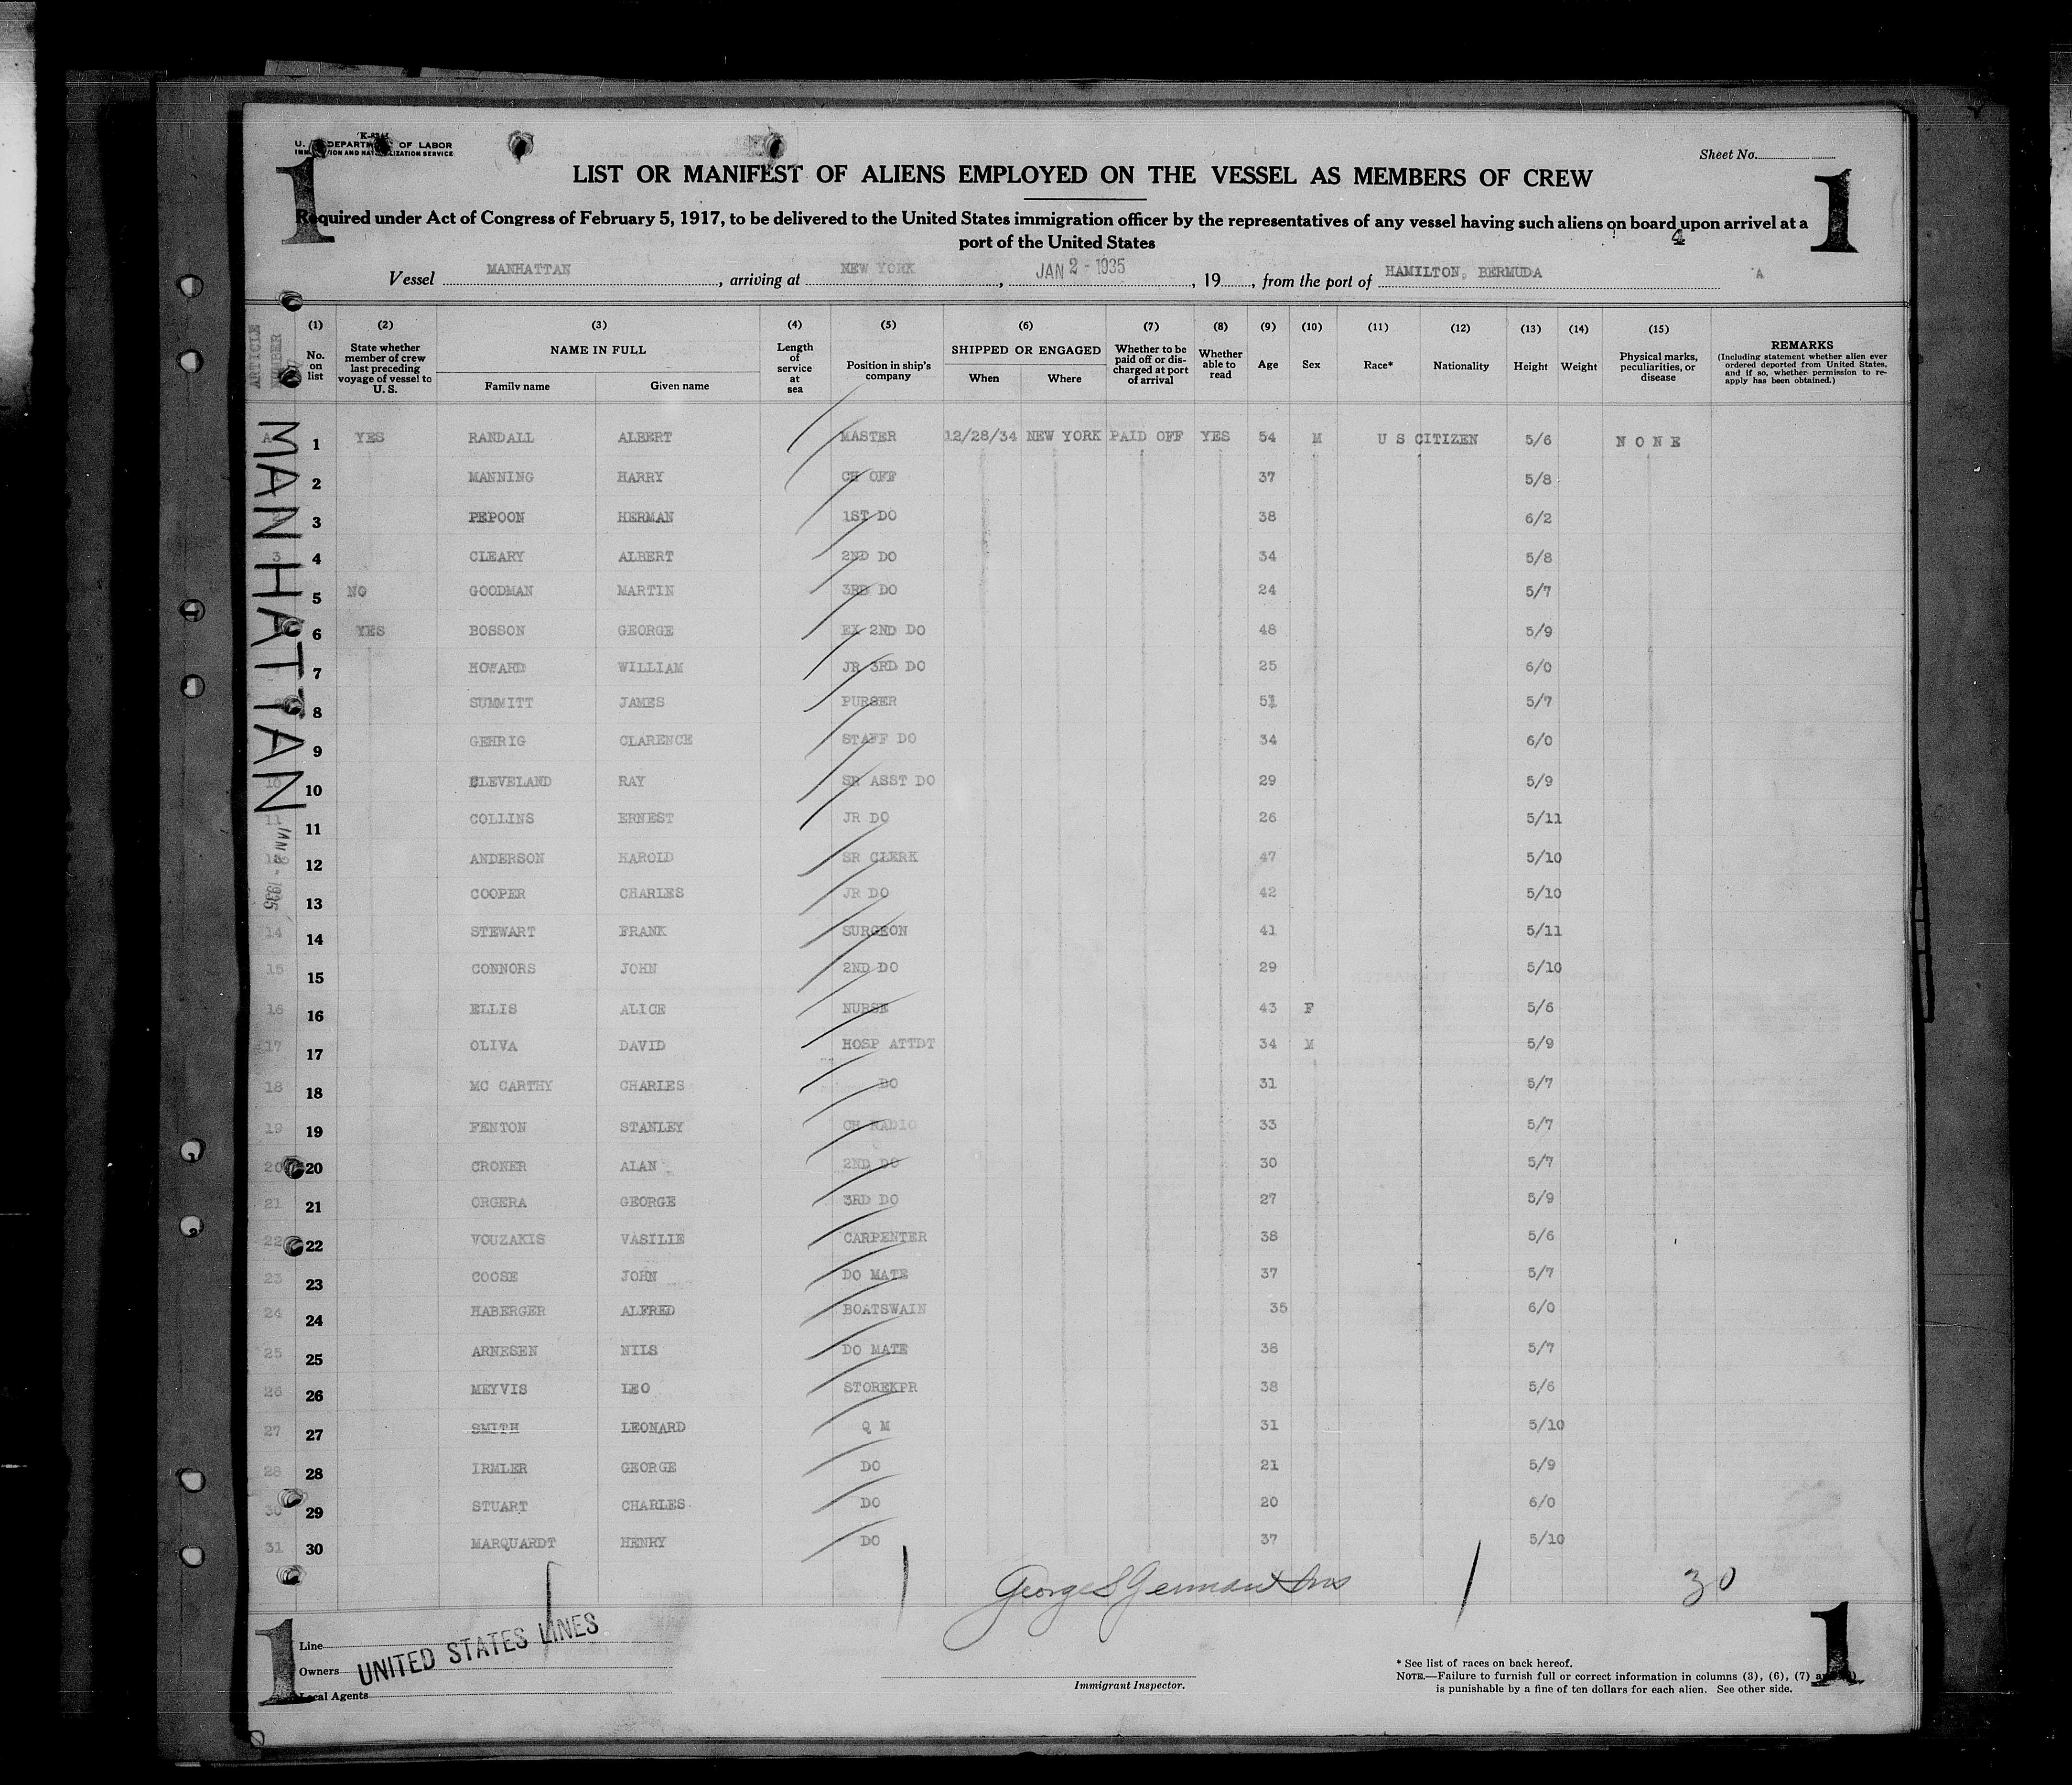 K-8241
U. S. DEPARTMENT OF LABOR
IMMIGRATION AND NATURALIZATION SERVICE
Sheet No.
1 1
LIST OR MANIFEST OF ALIENS EMPLOYED ON THE VESSEL AS MEMBERS OF CREW
Required under Act of Congress of February 5, 1917, to be delivered to the United States immigration officer by the representatives of any vessel having such aliens on board upon arrival at a
port of the United States
4
Vessel MANHATTAN, arriving at NEW YORK, JAN 2 - 1935, 19, from the port of HAMILTON, BERMUDA A
ARTICLE NUMBER
(1) No. on list
(2) State whether member of crew last preceding voyage of vessel to U. S.
(3) NAME IN FULL Family name Given name
(4) Length of service at sea
(5) Position in ship's company
(6) SHIPPED OR ENGAGED When Where
(7) Whether to be paid off or discharged at port of arrival
(8) Whether able to read
(9) Age
(10) Sex
(11) Race*
(12) Nationality
(13) Height
(14) Weight
(15) Physical marks, peculiarities, or disease
REMARKS (Including statement whether alien ever ordered deported from United States, and if so, whether permission to reapply has been obtained.)
MANHATTAN
JAN 2 - 1935
1 YES RANDALL ALBERT MASTER 12/28/34 NEW YORK PAID OFF YES 54 M U S CITIZEN 5/6 N O N E
2 MANNING HARRY CH OFF 37 5/8
3 PEPOON HERMAN 1ST DO 38 6/2
3 4 CLEARY ALBERT 2ND DO 34 5/8
5 NO GOODMAN MARTIN 3RD DO 24 5/7
6 YES BOSSON GEORGE EX 2ND DO 48 5/9
7 HOWARD WILLIAM JR 3RD DO 25 6/0
8 SUMMITT JAMES PURSER 51 5/7
9 GEHRIG CLARENCE STAFF DO 34 6/0
10 10 CLEVELAND RAY SR ASST DO 29 5/9
11 11 COLLINS ERNEST JR DO 26 5/11
12 12 ANDERSON HAROLD SR CLERK 47 5/10
13 COOPER CHARLES JR DO 42 5/10
14 14 STEWART FRANK SURGEON 41 5/11
15 15 CONNORS JOHN 2ND DO 29 5/10
16 16 ELLIS ALICE NURSE 43 F 5/6
17 17 OLIVA DAVID HOSP ATTDT 34 M 5/9
18 18 MC CARTHY CHARLES DO 31 5/7
19 19 FENTON STANLEY CH RADIO 33 5/7
20 20 CRONER ALAN 2ND DO 30 5/7
21 21 ORGERA GEORGE 3RD DO 27 5/9
22 22 VOUZAKIS VASILIE CARPENTER 38 5/6
23 23 COOSE JOHN DO MATE 37 5/7
24 24 HABERGER ALFRED BOATSWAIN 35 6/0
25 25 ARNESEN NILS DO MATE 38 5/7
26 26 MEYVIS LEO STOREKPR 38 5/6
27 27 SMITH LEONARD Q M 31 5/10
28 28 IRMLER GEORGE DO 21 5/9
30 29 STUART CHARLES DO 20 6/0
31 30 MARQUARDT HENRY DO 37 5/10
30
1 1
Line
Owners UNITED STATES LINES
Local Agents
Immigrant Inspector.
* See list of races on back hereof.
NOTE.—Failure to furnish full or correct information in columns (3), (6), (7)
is punishable by a fine of ten dollars for each alien. See other side.